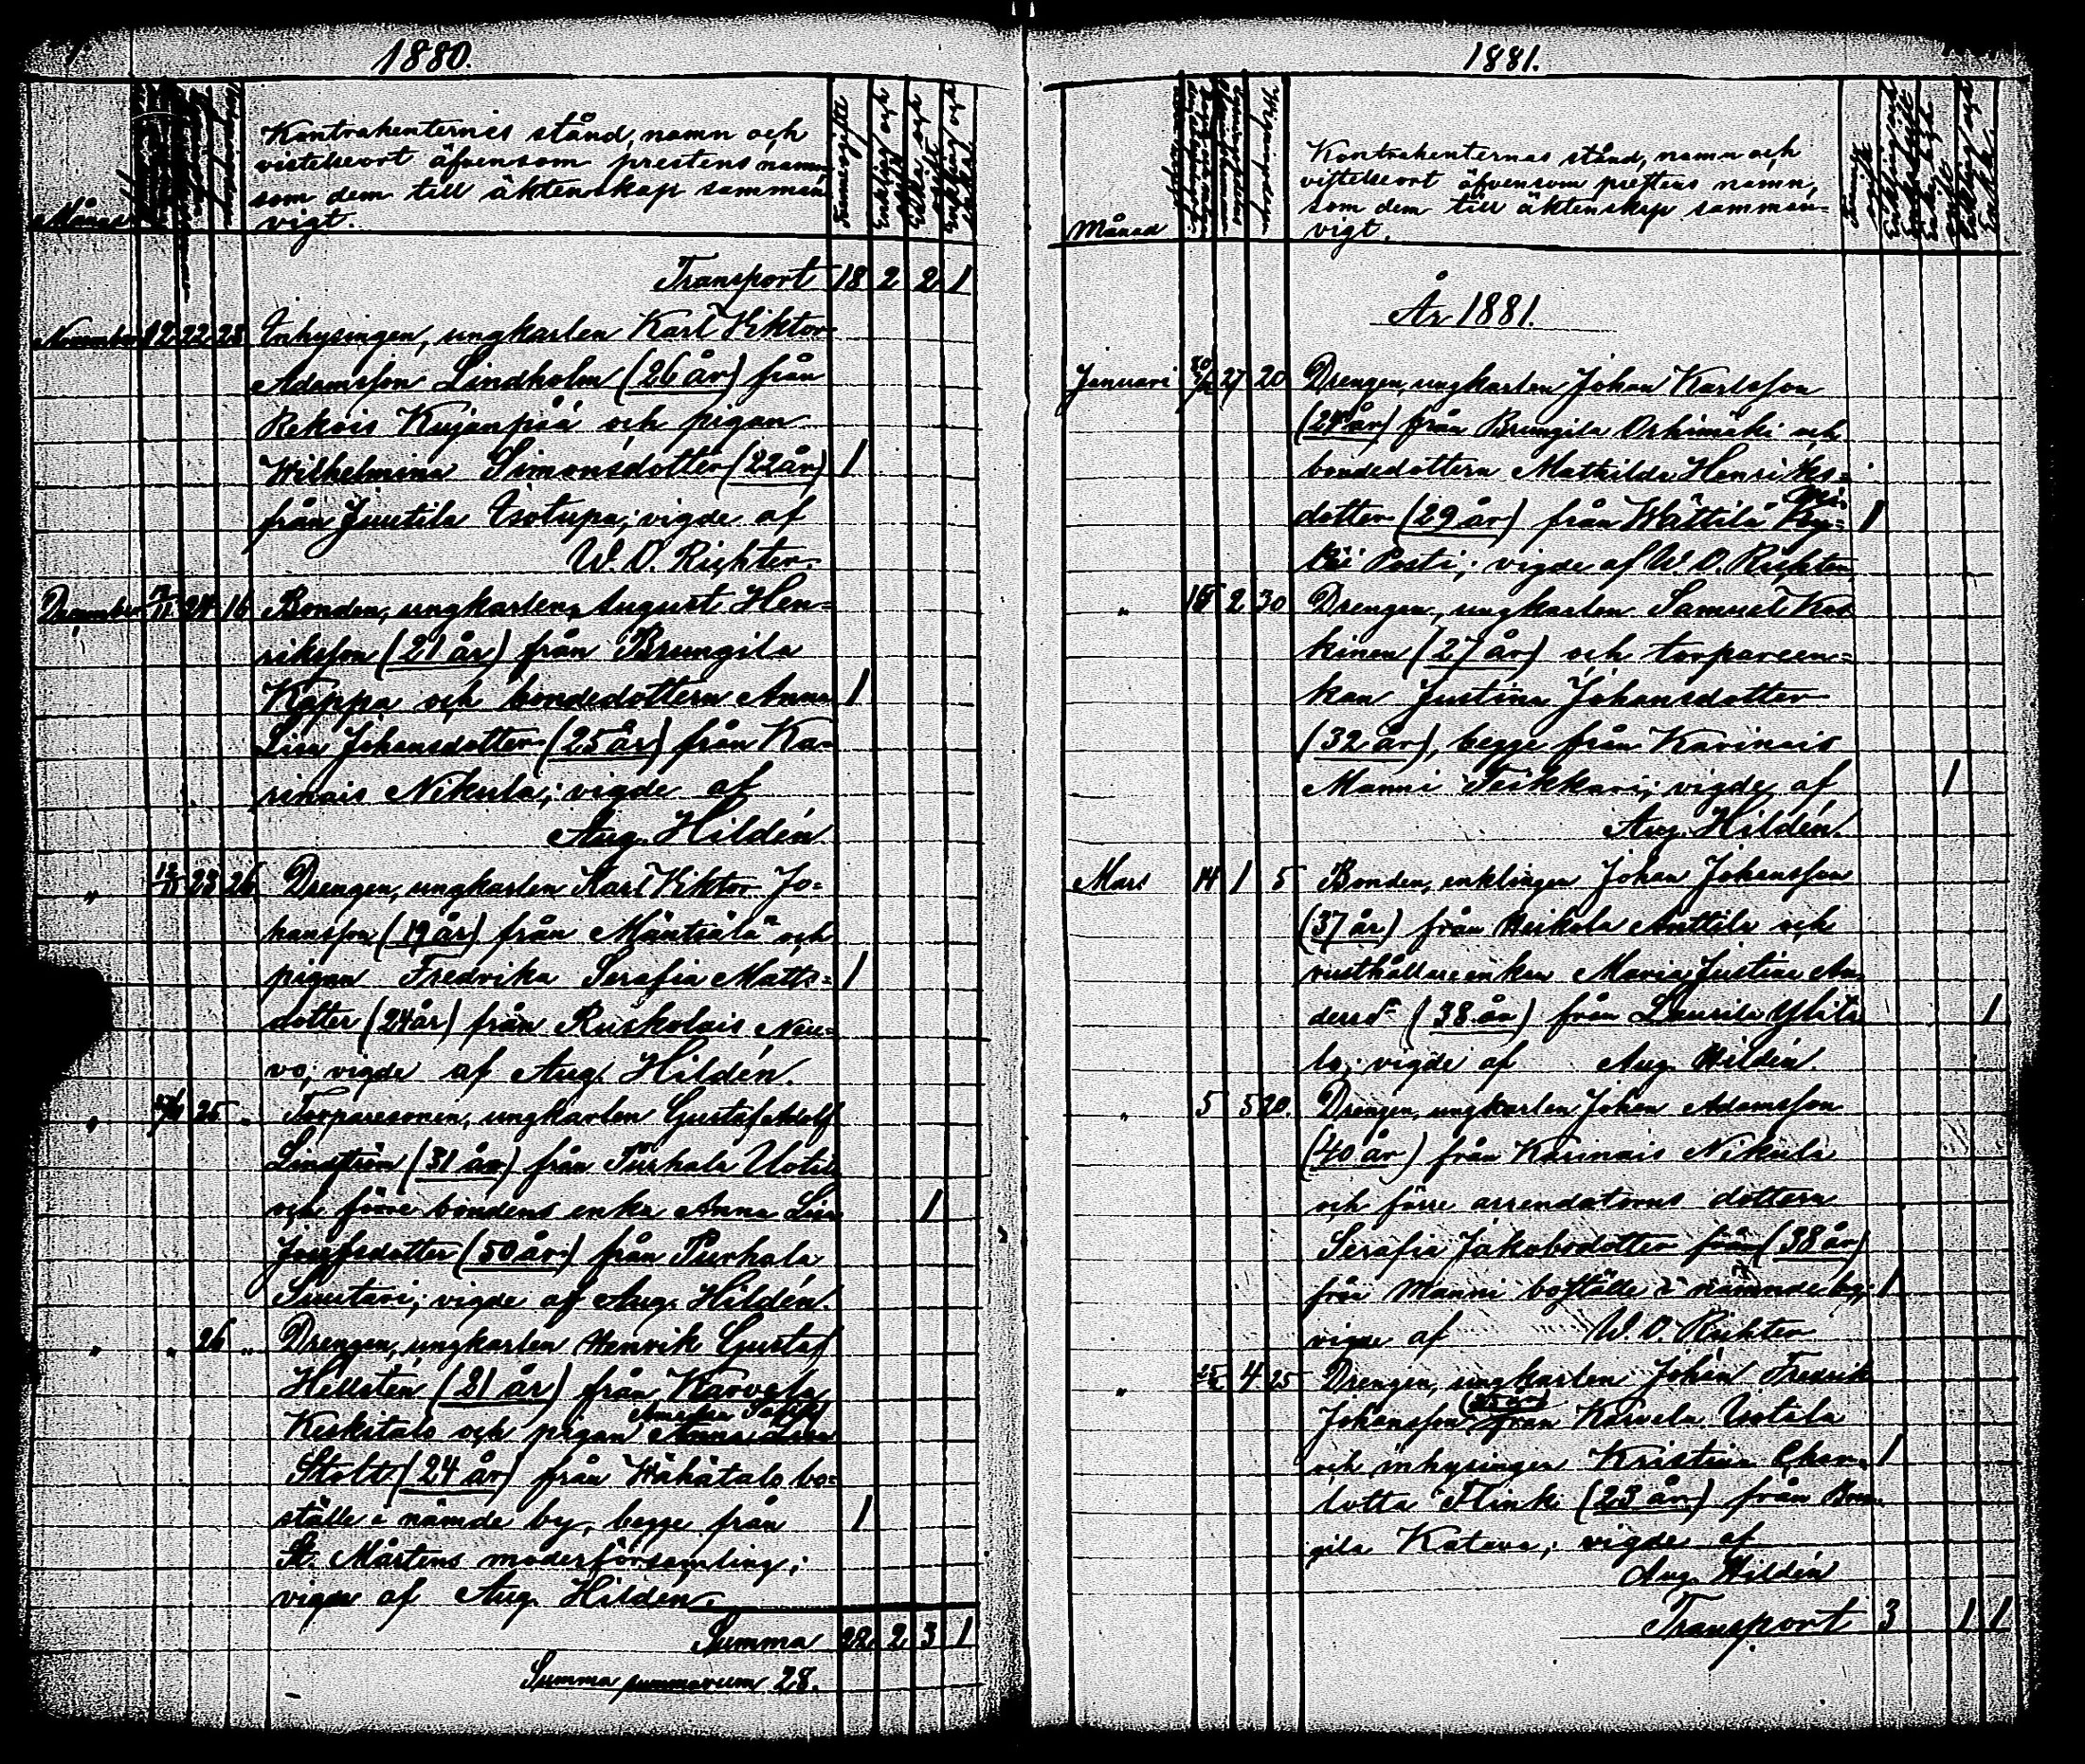 1880.
Kontrahenternes stånd, namn och
vistelseort äfvensom prestens namn
som dem till äktenskap samman
vigt.
Månad
Transport 18 2 2 1
November 12 22 28 Inhysingen, ungkarlen Karl Viktor
Adamsson Lindholm (26 år) från
Rekois Kujanpää och pigan
Wilhelmina Simonsdotter (22 år) 1
från Juutila Isotupa; vigde af
W. O. Richter.
December 12/11 24 16 Bonden, ungkarlen August Hen=
riksson (21 år) från Brungila
Kappa och bondedottern Anna 1
Lisa Johansdotter (25 år) från Ka=
rinais Nikula; vigde af
Aug. Hildén.
" 12/11 23 26 Drengen, ungkarlen Karl Viktor Jo=
hansson (19 år) från Mäntsälä och
pigan Fredrika Serafia Matts= 1
dotter (24 år) från Ruskolais Neu=
vo; vigde af Aug. Hildén.
" 25 " Torparesonen, ungkarlen Gustaf Adolf
Lindström (31 år) från Purhala Uotila
och förre bondens enka Anna Lisa 1
Josefsdotter (50 år) från Purhala
Suutari; vigde af Aug. Hildén.
" " 26 " Drengen, ungkarlen Henrik Gustaf
Hellstén (21 år) från Karvela
Keskitalo och pigan Amanda
Stolt (24 år) från Wähätalo bo=
ställe i nämde by, begge från 1
St. Mårtens moderförsamling;
vigde af Aug. Hildén.
Summa 22 2 3 1
Summa summarum 28.
1881.
Kontrahenternas stånd, namn och
vistelseort äfvensom prestens namn,
som dem till äktenskap samman=
vigt.
Månad
År 1881.
Januari 27 20 Drengen, ungkarlen Johan Karlsson
(24 år) från Brungila Orhimäki och
bondedottern Mathilda Henriks=
dotter (29 år) från Wättilä 1
Posti; vigde af W. O. Richter.
" 16 2 30 Drengen, ungkarlen Samuel Kos
kinen (27 år) och torpareen=
kan Justina Johansdotter
(32 år), begge från Karinais
Manni Teikkari; vigde af 1
Aug. Hildén.
Mars 14 1 5 Bonden, enklingen Johan Johansson
(37 år) från Heikola Anttila och
rusthållareenkan Maria Justina An
dersdr (38 år) från Laurila Ylita 1
lo; vigde af Aug. Hildén.
" 5 5 20. Drengen, ungkarlen Johan Adamsson
(40 år) från Karinais Nikula
och förre arrendatorns dottern
Serafia Jakobsdotter från (38 år)
från Manni boställe i nämnde by; 1
vigde af W. O. Richter
" 4 25 Drengen, ungkarlen Johan Fredrik
Johansson från Karvela Uotila
och inhysingen Kristina Char= 1
lotta Flink (23 år) från Brun
gila Katava; vigde af
Aug. Hildén
Transport 3 1 1